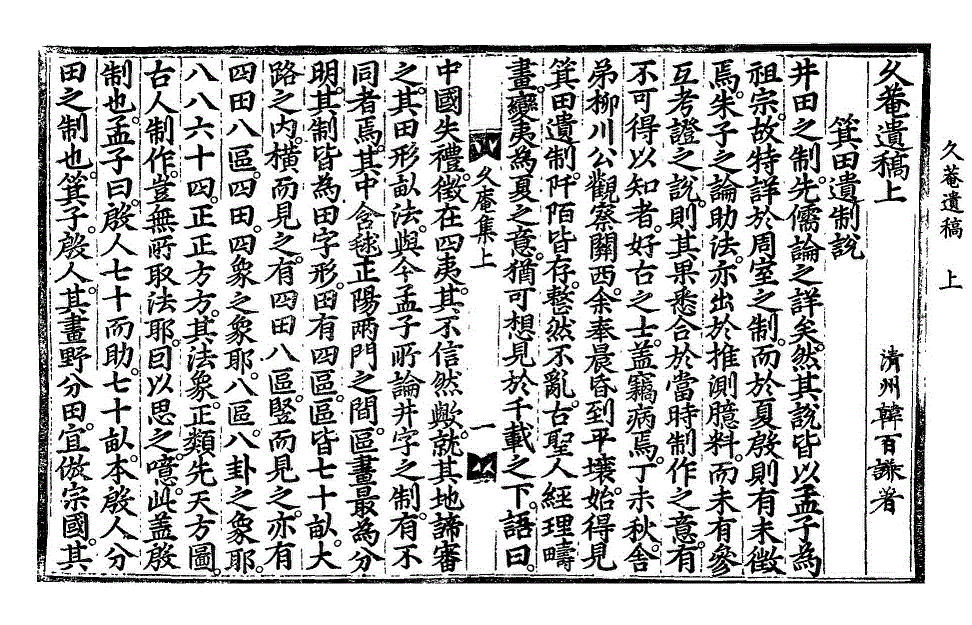 久菴遺稿 上
久菴遺稿上
箕田遺制說 淸州韓百謙著
井田之制。先儒論之詳矣。然其說皆以孟子爲
祖宗。故特詳於周室之制。而於夏殷則有未徵
焉。朱子之論助法。亦出於推測臆料。而未有參
互考證之說。則其果悉合於當時制作之意。有
不可得以知者。好古之士。盖竊病焉。丁未秋。舍
弟柳川公觀察關西。余奉晨昏到平壤。始得見
箕田遺制。阡陌皆存。整然不亂。古聖人經理疇
畫。變夷爲夏之意。猶可想見於千載之下。語曰。
久庵集上 一
中國失禮。徵在四夷。其不信然歟。就其地諦審
之。其田形畝法。與今孟子所論井字之制。有不
同者焉。其中含毬正陽兩門之間。區畫最爲分
明。其制皆爲田字形。田有四區。區皆七十畝。大
路之內。橫而見之。有四田八區。竪而見之。亦有
四田八區。四田。四象之象耶。八區八卦之象耶。
八八六十四。正正方方。其法象。正類先天方圖。
古人制作。豈無所取法耶。囙以思之。噫。此盖殷
制也。孟子曰。殷人七十而助。七十畝。本殷人分
田之制也。箕子。殷人。其畫野分田。宜倣宗國。其